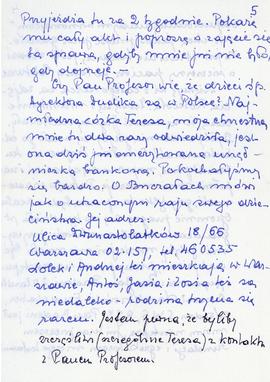 5
Przyjeżdża tu za 2 tygodnie. Pokażę
mu cały akt i poproszę o zajęcie się
tą sprawą, gdyby mnie już nie było,
gdy dojrzeje. —
Czy Pan Profesor wie, że dzieci śp.
Dyrektora Dudika są w Polsce? Naj-
młodsza córka Teresa, moja chrzestna
mnie tu dwa razy odwiedziła, jest
ona dziś już emerytowaną urzęd-
niczką bankową. Pokochałyśmy
się bardzo. O Bmorałach mówi
jak o utraconym raju swego dzie-
ciństwa. Jej adres:
Ulica Dwunastolatków 18/66
Warszawa 02-157, tel. 460535
Lolek i Andrzej też mieszkają w War-
szawie, Antoś, Jasia i Zosia też są
niedaleko – rodzina trzyma się
razem. Jestem pewna, że byliby
szczęśliwi (szczególnie Teresa) z kontaktu
z Panem Profesorem.